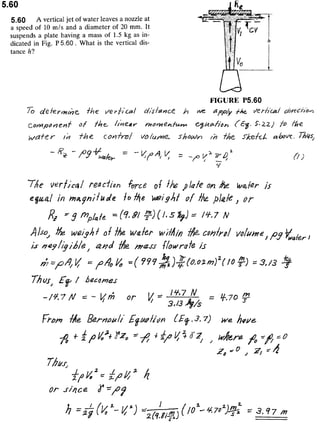 5.60
5.60 A vertical jet of water leaves a nozzle at
a speed of 10 m/s and a diameter of 20 mm. It
suspends a plate having a mass of 1.5 kg as in-
dicated in Fig. P5.60. What is the vertical dis-
tance h?
CV
V₁
V₀
FIGURE P5.60
To determine the vertical distance h we apply the vertical direction
component of the linear momentum equation (Eq. 5.22) to the
water in the control volume shown in the sketch above. Thus,
- R_z - ρg V_water = - V₁ρA₁V₁ = - ρV₁² πD₁²/4 (1)
The vertical reaction force of the plate on the water is
equal in magnitude to the weight of the plate, or
R_z = g m_plate = (9.81 m/s²)(1.5 kg) = 14.7 N
Also, the weight of the water within the control volume, ρg V_water,
is negligible, and the mass flowrate is
ṁ = ρA₁V₁ = ρA₀V₀ = (999 kg/m³) π/4 (0.02m)² (10 m/s) = 3.13 kg/s
Thus, Eq. 1 becomes
-14.7 N = - V₁ṁ or V₁ = 14.7 N / 3.13 kg/s = 4.70 m/s
From the Bernoulli Equation (Eq. 3.7) we have
p₀ + ½ρV₀² + γz₀ = p₁ + ½ρV₁² + γz₁, where p₀=p₁=0
z₀=0, z₁=h
Thus,
½ρV₀² = ½ρV₁² + γh
or since γ=ρg
h = 1/2g (V₀² - V₁²) = 1/2(9.81 m/s²) (10² - 4.70²) m²/s² = 3.97 m